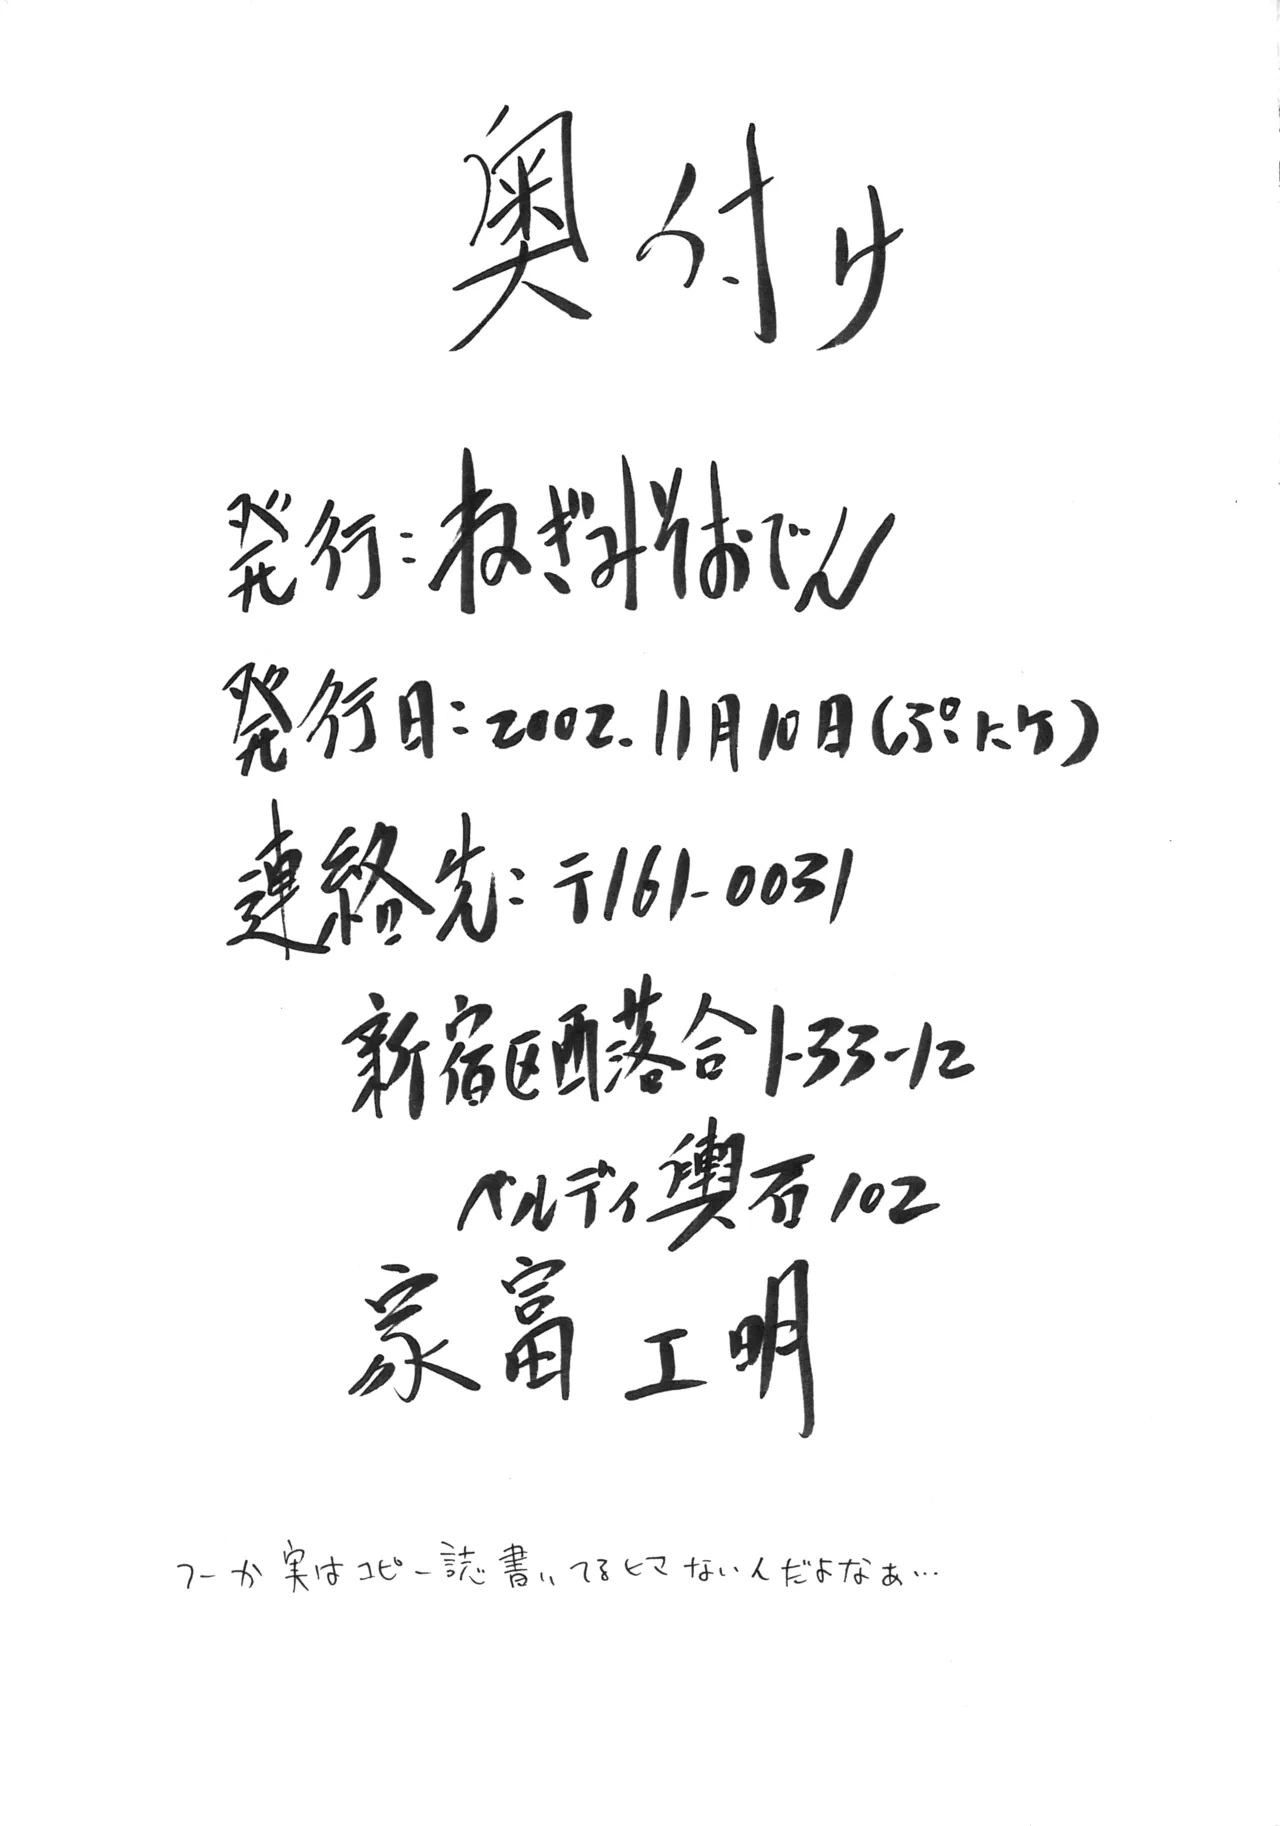 奥付け
発行：ねぎみそおでん
発行日：2002.11月10日(ぷにケ)
連絡先：〒161-0031
新宿区西落合1-33-12
ベルディ輿石102
家富工明
つーか実はコピー誌書いてるヒマないんだよなぁ…